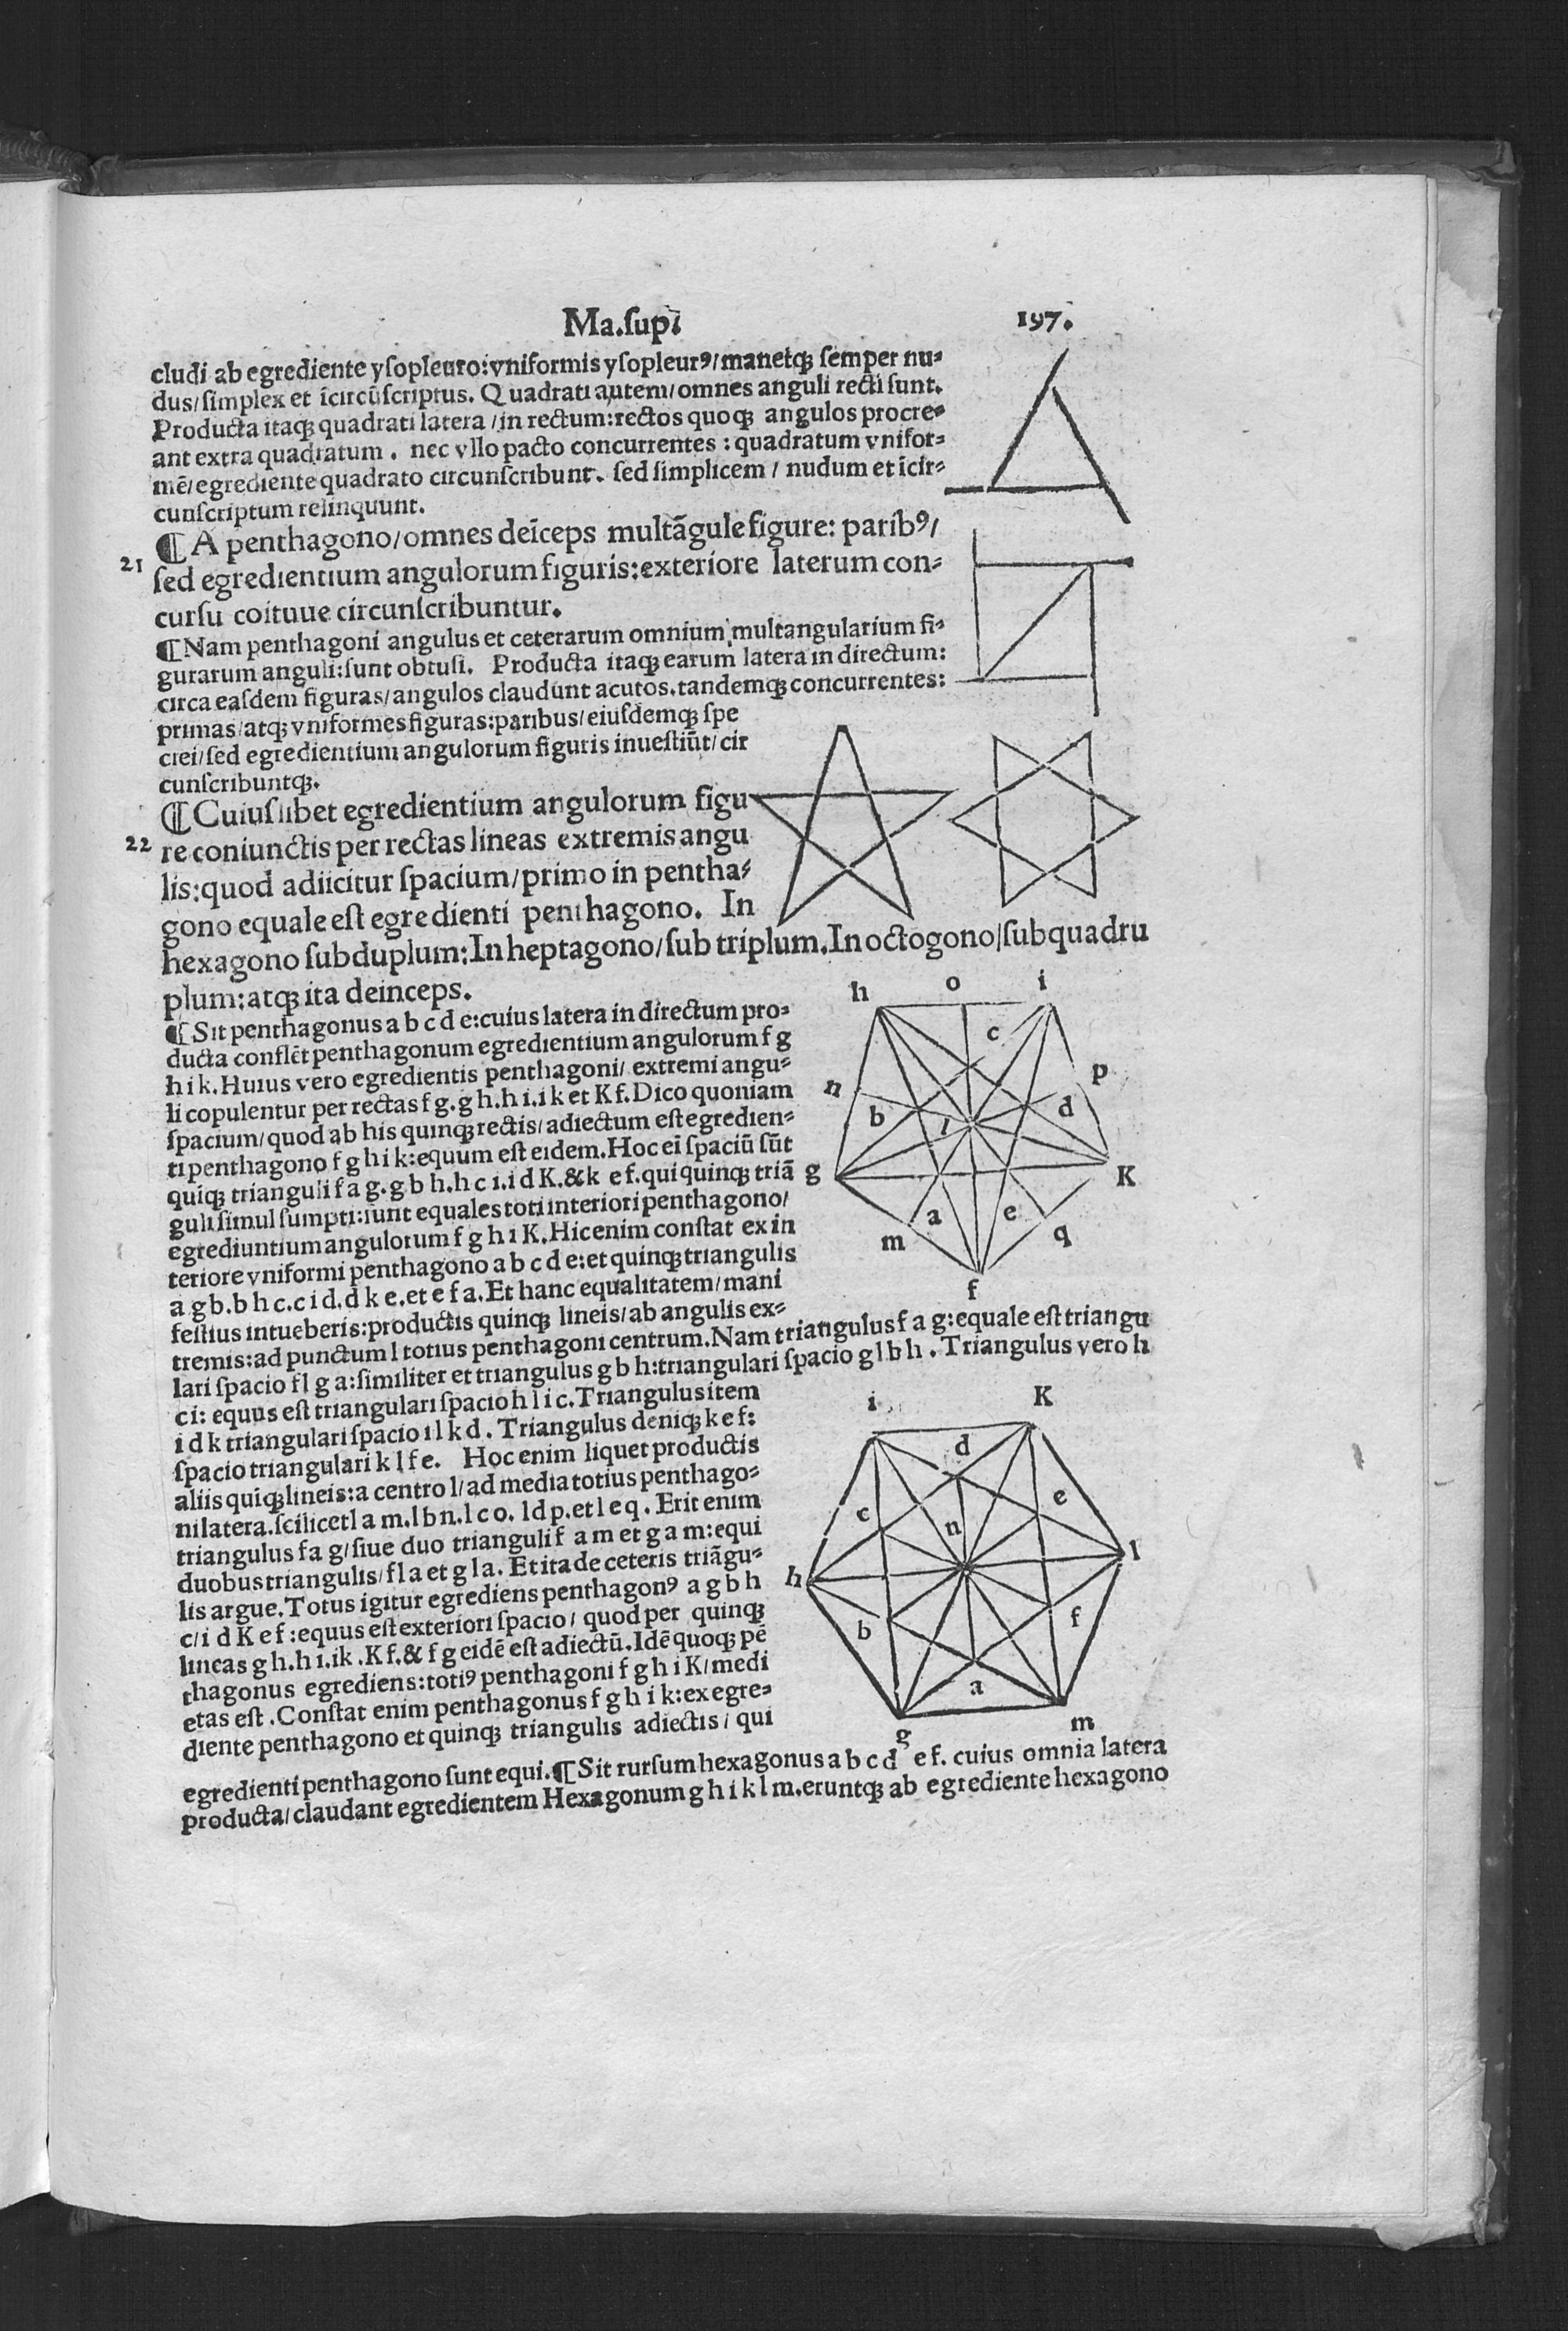 Ma.supi
197.
cludi ab egrediente ysopleuro:vniformis ysopleurꝰ/manetqꝫ semper nu⸗
dus/simplex et īcircūscriptus. Quadrati autem/omnes anguli recti sunt.
Producta itaqꝫ quadrati latera/in rectum:rectos quoqꝫ angulos procre⸗
ant extra quadratum. nec vllo pacto concurrentes:quadratum vnifor⸗
mē/egrediente quadrato circunscribunt. sed simplicem/nudum et īcir⸗
cunscriptum relinquunt.
21
¶A penthagono/omnes deīceps multāgule figure: paribꝰ/
sed egredientium angulorum figuris:exteriore laterum con⸗
cursu coituue circunscribuntur.
¶Nam penthagoni angulus et ceterarum omnium multangularium fi⸗
gurarum anguli:sunt obtusi. Producta itaqꝫ earum latera in directum:
circa easdem figuras/angulos claudunt acutos.tandemqꝫ concurrentes:
primas/atqꝫ vniformes figuras:paribus/eiusdemqꝫ spe
ciei/sed egredientium angulorum figuris inuestiūt/cir
cunscribuntqꝫ.
22
¶Cuiuslibet egredientium angulorum figu
re coniunctis per rectas lineas extremis angu
lis:quod adiicitur spacium/primo in pentha⸗
gono equale est egredienti penthagono. In
hexagono subduplum:In heptagono/sub triplum.In octogono/subquadru
plum:atqꝫ ita deinceps.
¶Sit penthagonus a b c d e:cuius latera in directum pro⸗
ducta conflēt penthagonum egredientium angulorum f g
h i k.Huius vero egredientis penthagoni/ extremi angu⸗
li copulentur per rectas f g.g h.h i.i k et K f.Dico quoniam
spacium/quod ab his quinqꝫ rectis/adiectum est egredien⸗
ti penthagono f g h i k:equum est eidem.Hoc eī spaciū sūt
quiqꝫ trianguli f a g.g b h.h c i.i d K.&k e f.qui quinqꝫ triā
guli simul sumpti:sunt equales toti interiori penthagono/
egrediuntium angulorum f g h i K.Hic enim constat ex in
teriore vniformi penthagono a b c d e:et quinqꝫ triangulis
a g b.b h c.c i d.d k e.et e f a.Et hanc equalitatem/mani
festius intueberis:productis quinqꝫ lineis/ab angulis ex⸗
tremis:ad punctum l totius penthagoni centrum.Nam triangulus f a g:equale est triangu
lari spacio f l g a:similiter et triangulus g b h:triangulari spacio g l b h. Triangulus vero h
c i: equus est triangulari spacio h l i c.Triangulus item
i d k triangulari spacio i l k d. Triangulus deniqꝫ k e f:
spacio triangulari k l f e. Hoc enim liquet productis
aliis quiqꝫ lineis:a centro l/ad media totius penthago⸗
ni latera.scilicet l a m.l b n.l c o. l d p.et l e q. Erit enim
triangulus f a g/siue duo trianguli f a m et g a m:equi
duobus triangulis/f l a et g l a. Et ita de ceteris triāgu⸗
lis argue.Totus igitur egrediens penthagonꝰ a g b h
c/i d K e f:equus est exteriori spacio/ quod per quinqꝫ
lineas g h.h i.ik .K f.& f g eidē est adiectū.Idē quoqꝫ pē
thagonus egrediens:totiꝰ penthagoni f g h i K/medi
etas est.Constat enim penthagonus f g h i k:ex egre⸗
diente penthagono et quinqꝫ triangulis adiectis/ qui
egredienti penthagono sunt equi.¶Sit rursum hexagonus a b c d e f. cuius omnia latera
producta/claudant egredientem Hexagonum g h i k l m.eruntqꝫ ab egrediente hexagono
h o i
c
n p
b l d
g K
a e
m q
f
i K
d
c e
n
h l
b f
a
g m